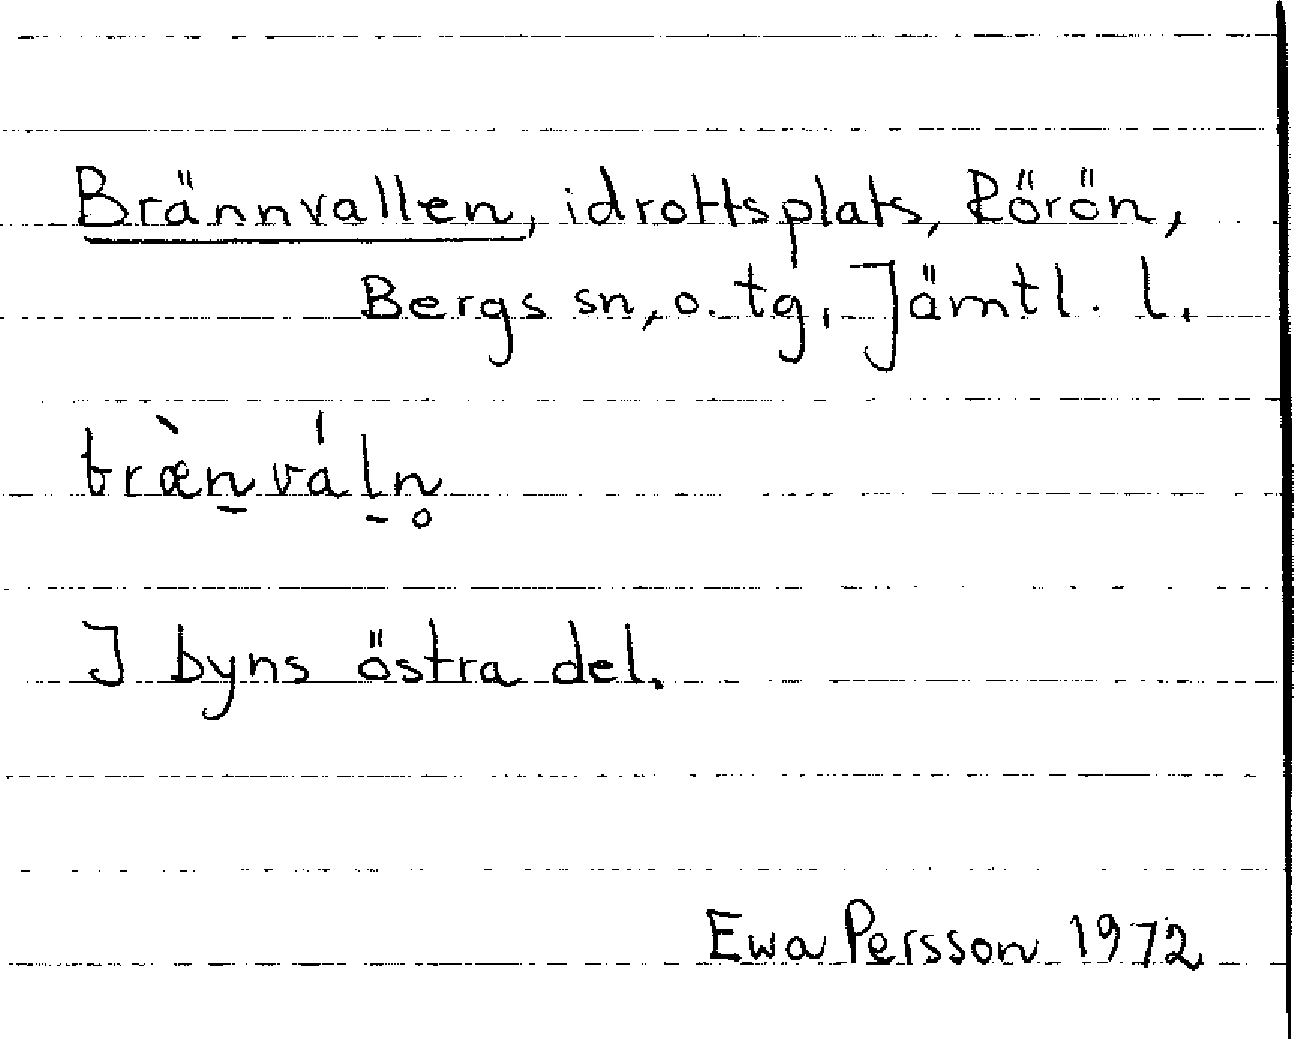 Brännvallen, idrottsplats, Rörön,
Bergs sn, o. tg, Jämtl. l.
bræ̀n̠vál̠n̥
I byns östra del.
Ewa Persson 1972